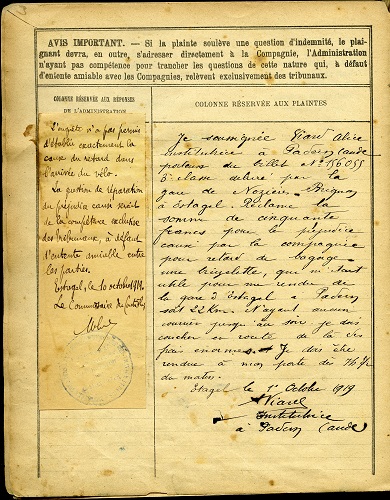 AVIS IMPORTANT. — Si la plainte soulève une question d'indemnité, le plai-
gnant devra, en outre, s'adresser directement à la Compagnie, l'Administration
n'ayant pas compétence pour trancher les questions de cette nature qui, à défaut
d'entente amiable avec les Compagnies, relèvent exclusivement des tribunaux.
COLONNE RÉSERVÉE AUX RÉPONSES
DE L'ADMINISTRATION
L'enquête n'a pas permis
d'établir exactement la
cause du retard dans
l'arrivée du vélo.
La question de réparation
du préjudice causé serait
de la compétence exclusive
des tribunaux, à défaut
d'entente amiable entre
les parties.
Estagel, le 10 octobre 1919.
Le Commissaire de
COLONNE RÉSERVÉE AUX PLAINTES
Je soussignée Viard Alice
institutrice à Padern (Aude)
porteur du billet N° 156055
3e classe délivré par la
gare de Nozières-Brignon
à Estagel. Réclame la
somme de cinquante
francs pour le préjudice
causé par la compagnie
pour retard de bagage
une bicyclette, qui m'était
utile pour me rendre de
la gare d'Estagel à Padern
soit 22 Km. N'ayant aucun
courrier jusqu'au soir je dois
coucher en route de là des
frais énormes. Je dois être
rendue à mon poste dès
du matin.
Estagel le 1er Octobre 1919
Viard
Institutrice
à Padern (Aude)